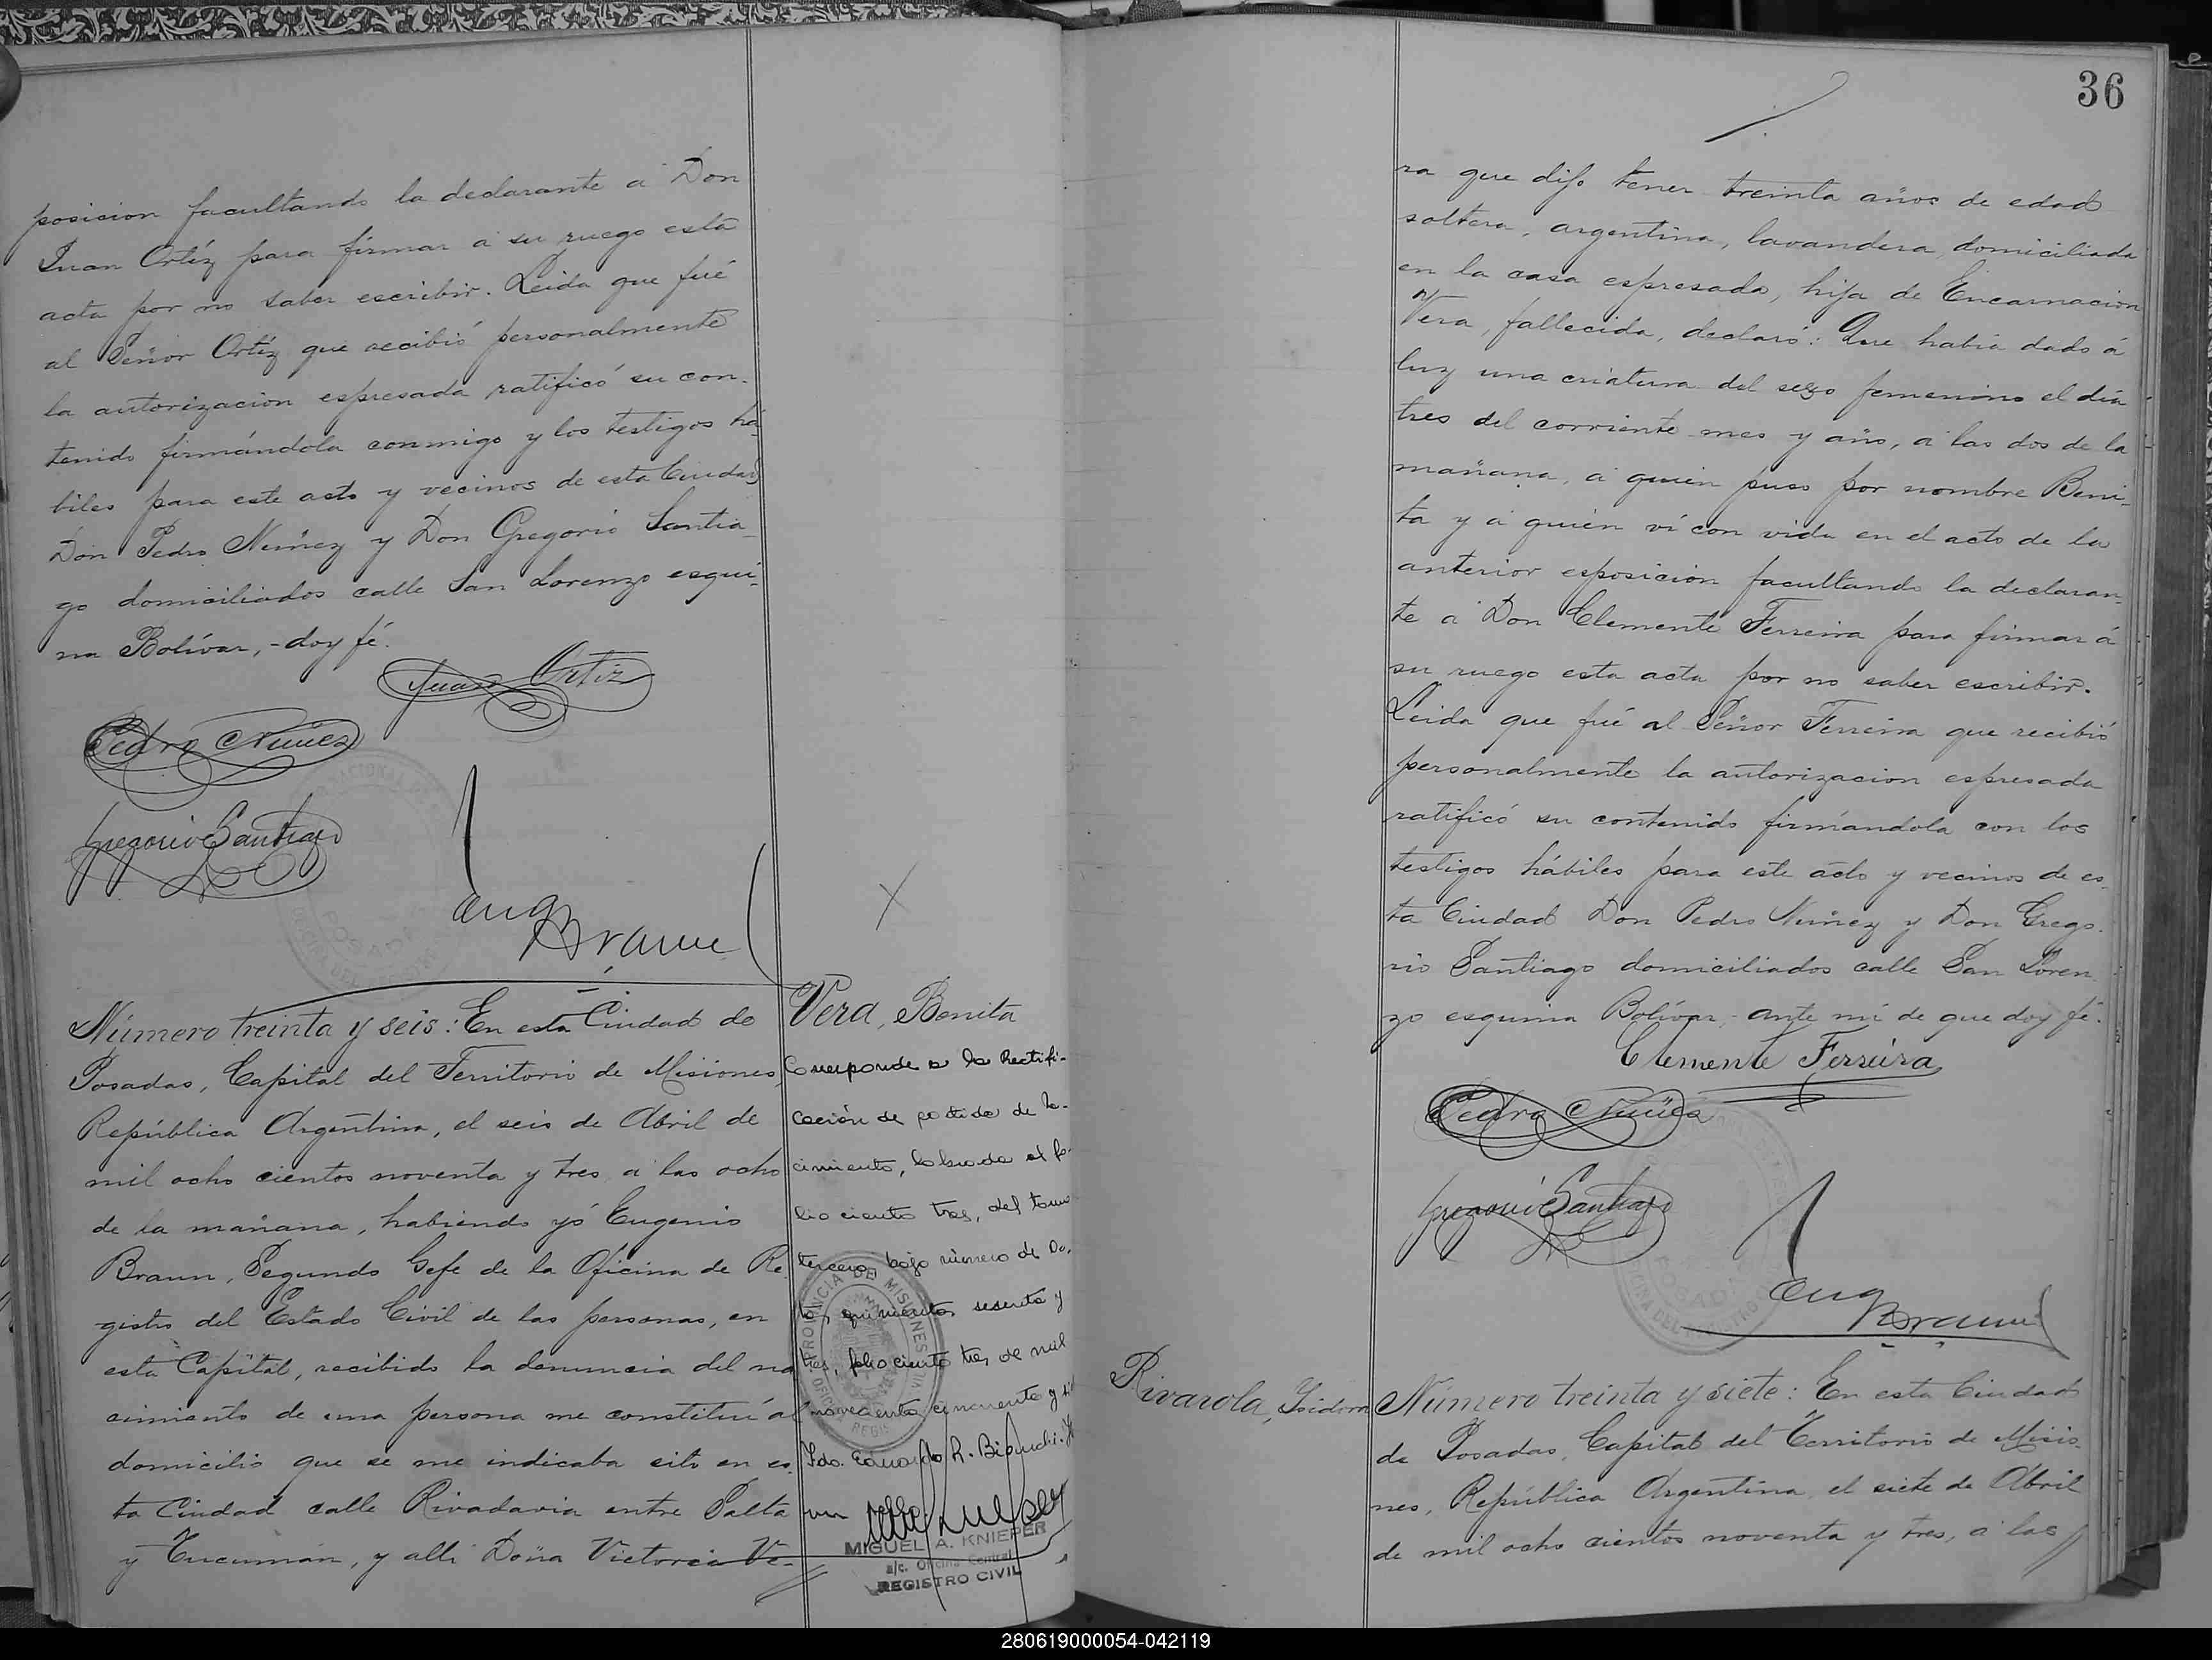 posicion facultando la declarante á Don
Juan Ortíz para firmar á su ruego esta
acta por no saber escribir. Leida que fué
al Señor Ortíz que recibió personalmente
la autorizacion espresada ratificó su con-
tenido firmándola conmigo y los testigos há-
biles para este acto y vecinos de esta Ciudad
Don Pedro Nuñez y Don Gregorio Santia-
go domiciliados calle San Lorenzo esqui-
na Bolívar,- doy fé.
Juan Ortiz
Pedro Nuñez
Gregorio Santiago
Eug Braun
Número treinta y seis: En esta Ciudad de
Posadas, Capital del Territorio de Misiones,
República Argentina, el seis de Abril de
mil ocho cientos noventa y tres á las ocho
de la mañana, habiendo yó Eugenio
Braun, Segundo Gefe de la Oficina de Re-
gistro del Estado Civil de las personas, en
esta Capital, recibido la denuncia del na-
cimiento de una persona me constituí al
domicilio que se me indicaba sito en es-
ta Ciudad calle Rivadavia entre Salta
y Tucumán, y alli Doña Victoria Ve-
Vera, Benita
Corresponde a la Rectifi-
cación de partida de Na-
cimiento, labrada al fo-
lio ciento tres, del tomo
tercero, bajo número de Do.
quinientos sesenta y
tres, folio ciento tres de mil
novecientos cincuenta y
Fdo. Eduardo R. Bianchi.
PROVINCIA DE MISIONES
MIGUEL A. KNIEPER
a/c. Oficina Central
REGISTRO CIVIL
36
ra que dijo tener treinta años de edad
soltera, argentina, lavandera, domiciliada
en la casa espresada, hija de Encarnacion
Vera, fallecida, declaró: Que habia dado á
luz una criatura del sexo femenino el dia
tres del corriente mes y año, á las dos de la
mañana, á quien puso por nombre Beni-
ta y á quien ví con vida en el acto de la
anterior esposicion facultando la declaran-
te á Don Clemente Ferreira para firmar á
su ruego esta acta por no saber escribir.
Leida que fué al Señor Ferreira que recibió
personalmente la autorizacion espresada
ratificó su contenido firmándola con los
testigos hábiles para este acto y vecinos de es-
ta Ciudad Don Pedro Nuñez y Don Grego-
rio Santiago domiciliados calle San Loren-
zo esquina Bolívar,- ante mi de que doy fé.
Clemente Ferreira
Pedro Nuñez
Gregorio Santiago
Eug Braun
Rivarola, Isidora
Número treinta y siete: En esta Ciudad
de Posadas, Capital del Territorio de Misio-
nes, República Argentina, el siete de Abril
de mil ocho cientos noventa y tres, á las
280619000054-042119